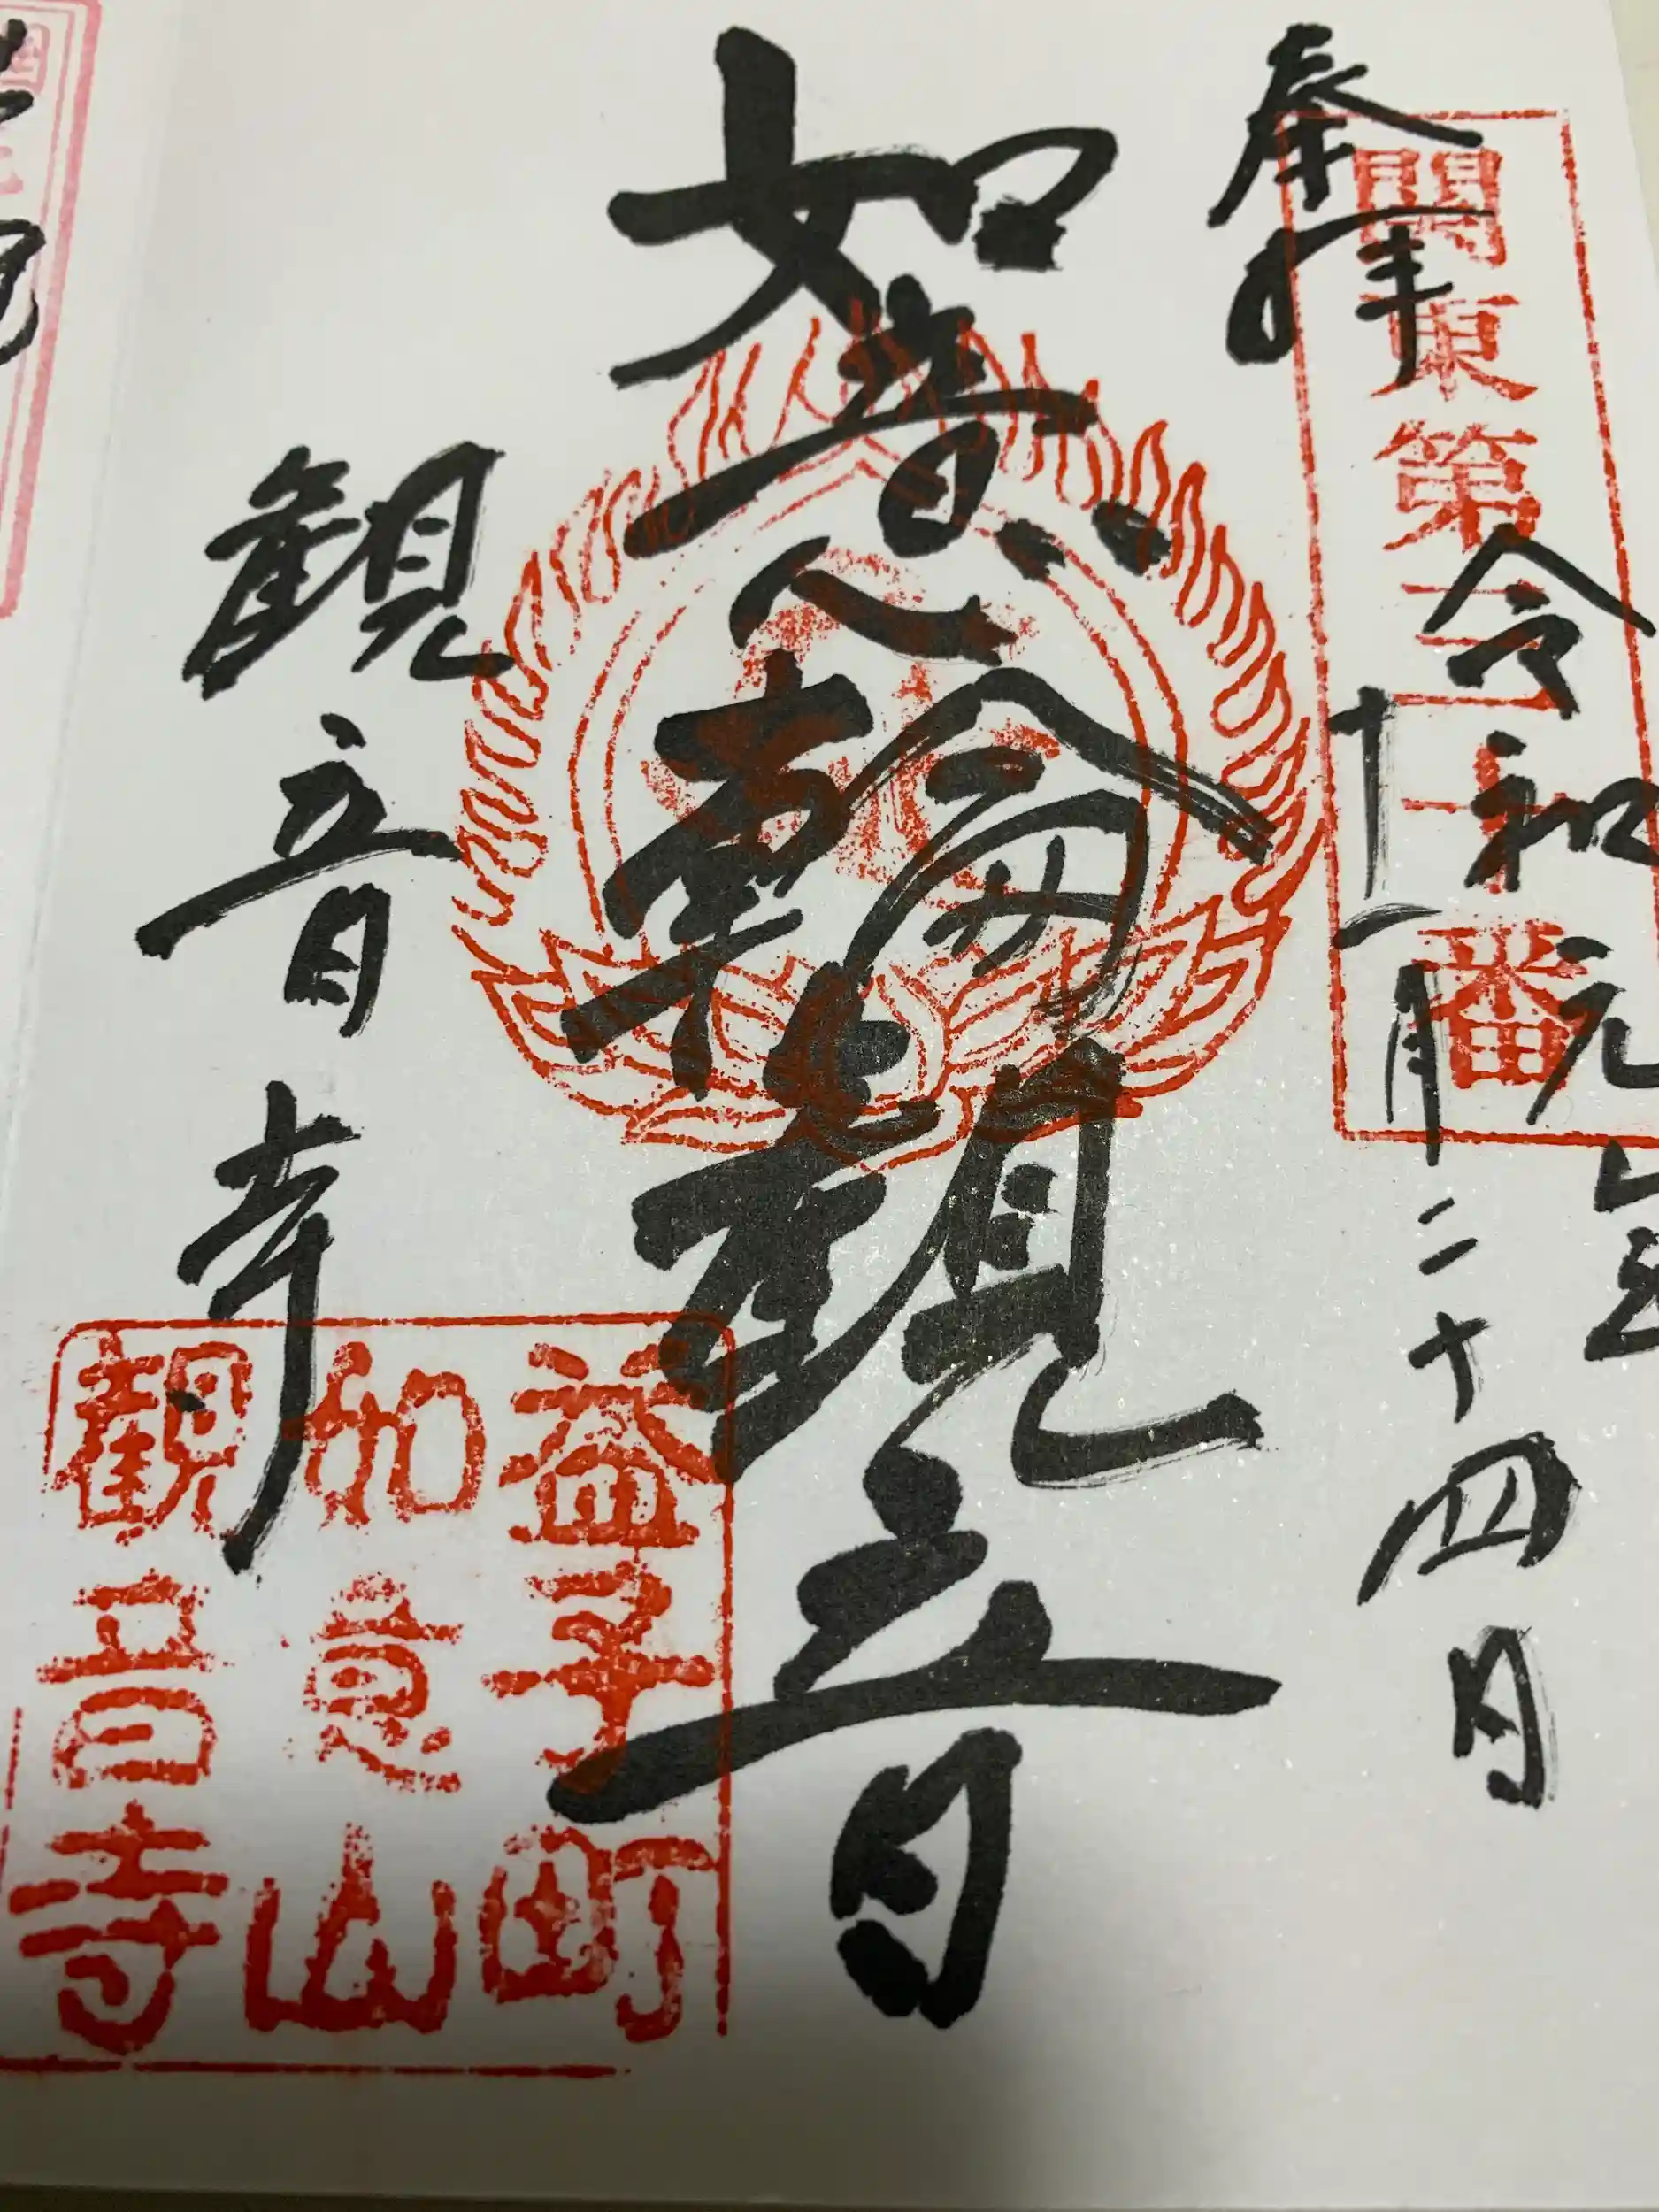 奉拝
関東第三十番
令和元年
十一月二十四日
如意輪観音
観音寺
益子町
如意山
観音寺